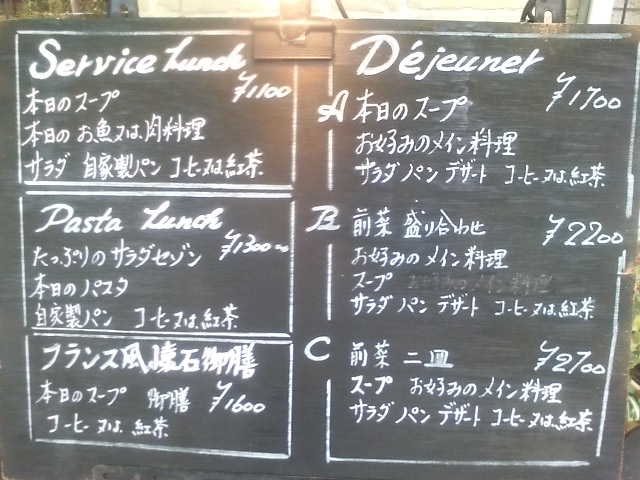 Service Lunch
¥1100
本日のスープ
本日のお魚又は肉料理
サラダ 自家製パン コーヒー又は紅茶
Pasta Lunch
¥1300~
たっぷりのサラダセゾン
本日のパスタ
自家製パン コーヒー又は紅茶
フランス風懐石御膳
本日のスープ 御膳 ¥1600
コーヒー又は紅茶
Déjeuner
A 本日のスープ ¥1700
お好みのメイン料理
サラダ パン デザート コーヒー又は紅茶
B 前菜 盛り合わせ ¥2200
お好みのメイン料理
スープ
サラダ パン デザート コーヒー又は紅茶
C 前菜 二皿 ¥2700
スープ お好みのメイン料理
サラダ パン デザート コーヒー又は紅茶